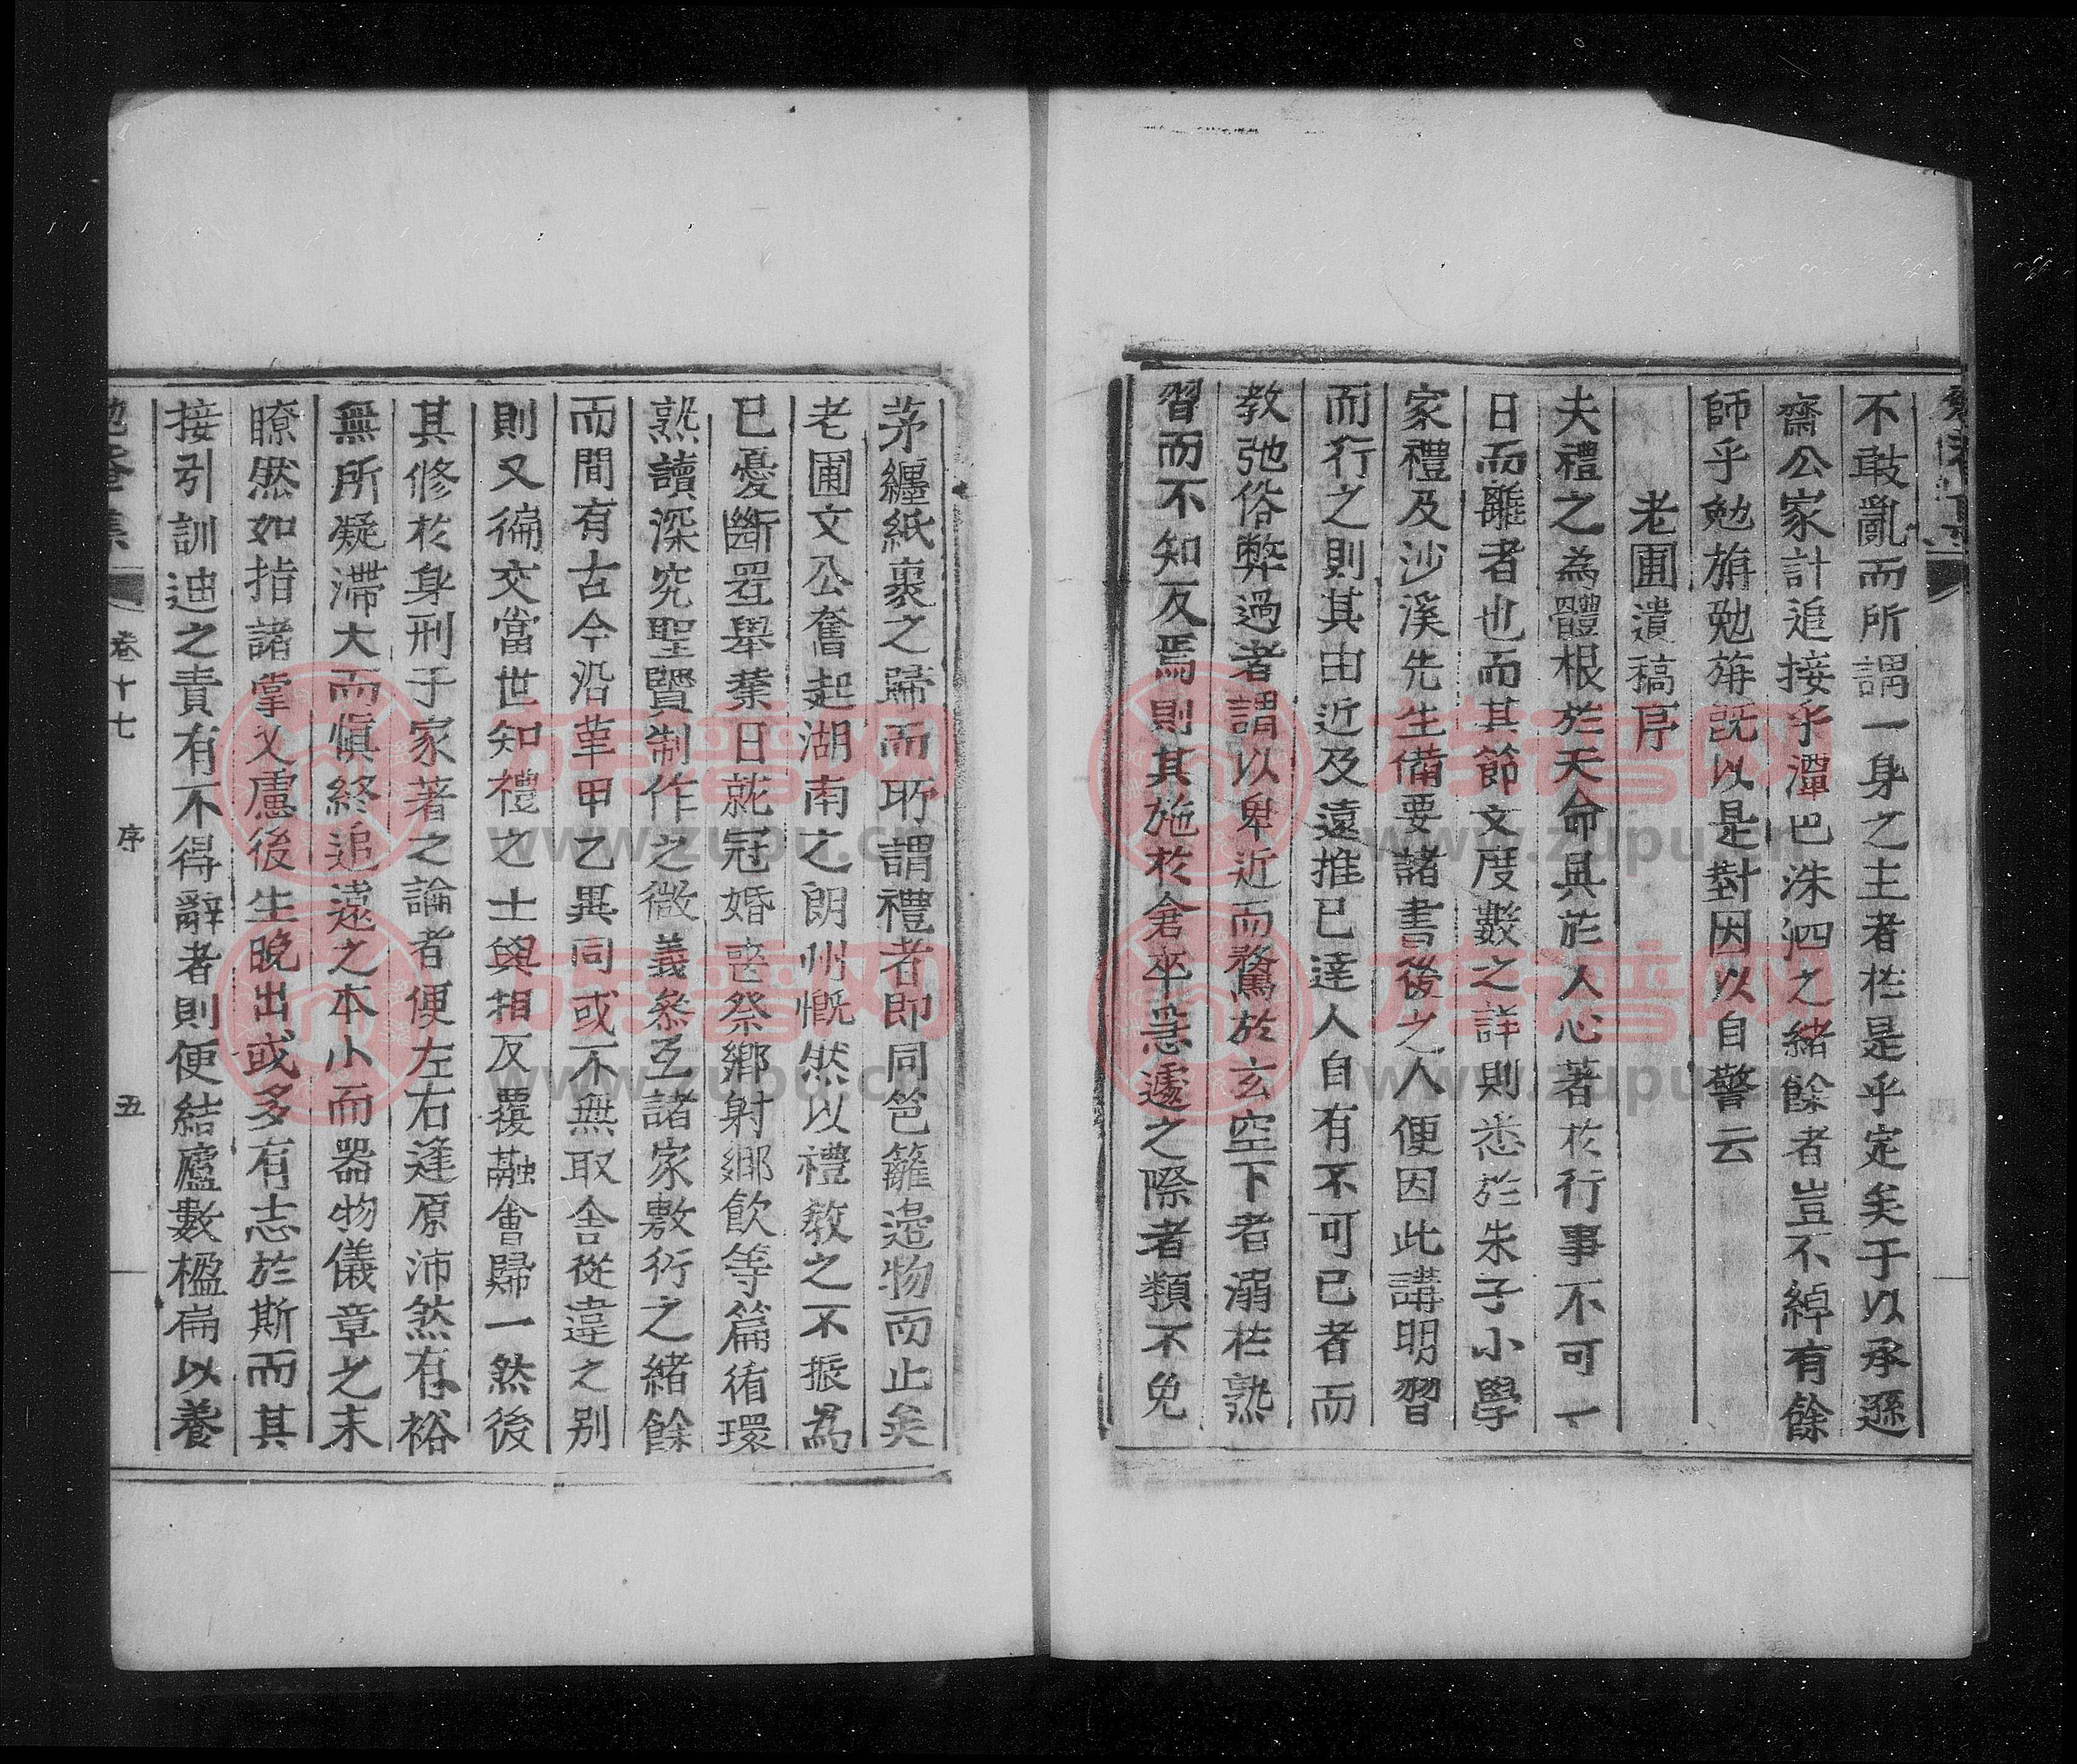 不敢亂而所謂一身之主者於是乎定矣于以承遜
齋公家計追接乎潭巴洙泗之緒餘者豈不綽有餘
師乎勉旃勉旃旣以是對因以自警云
老圃遺稿序
夫禮之為體根於天命具於人心著於行事不可一
日而離者也而其節文度數之詳則悉於朱子小學
家禮及沙溪先生備要諸書後之人便因此講明習
而行之則其由近及遠推已達人自有不可已者而
教弛俗弊過者謂以卑近而騖於玄空下者溺於熟
習而不知反焉則其施於倉卒急遽之際者類不免
茅纏紙裹之歸而所謂禮者即同笆籬邉物而止矣
老圃文公奮起湖南之朗州慨然以禮敎之不振為
已憂斷置舉業日就冠婚喪祭鄉射鄉飲等篇循環
熟讀深究聖賢制作之微義叅互諸家敷衍之緒餘
而間有古今沿革甲乙異同或不無取舍從違之别
則又徧交當世知禮之士與相反覆融會歸一然後
其修於身刑于家著之論者便左右逢原沛然有裕
無所凝滯大而愼終追遠之本小而器物儀章之末
瞭然如指諸掌又慮後生晚出或多有志於斯而其
接引訓迪之責有不得辭者則便結廬數楹扁以養
卷十七
序
五
族谱网
www.zupu.cn
族谱网
www.zupu.cn
族谱网
www.zupu.cn
族谱网
www.zupu.cn